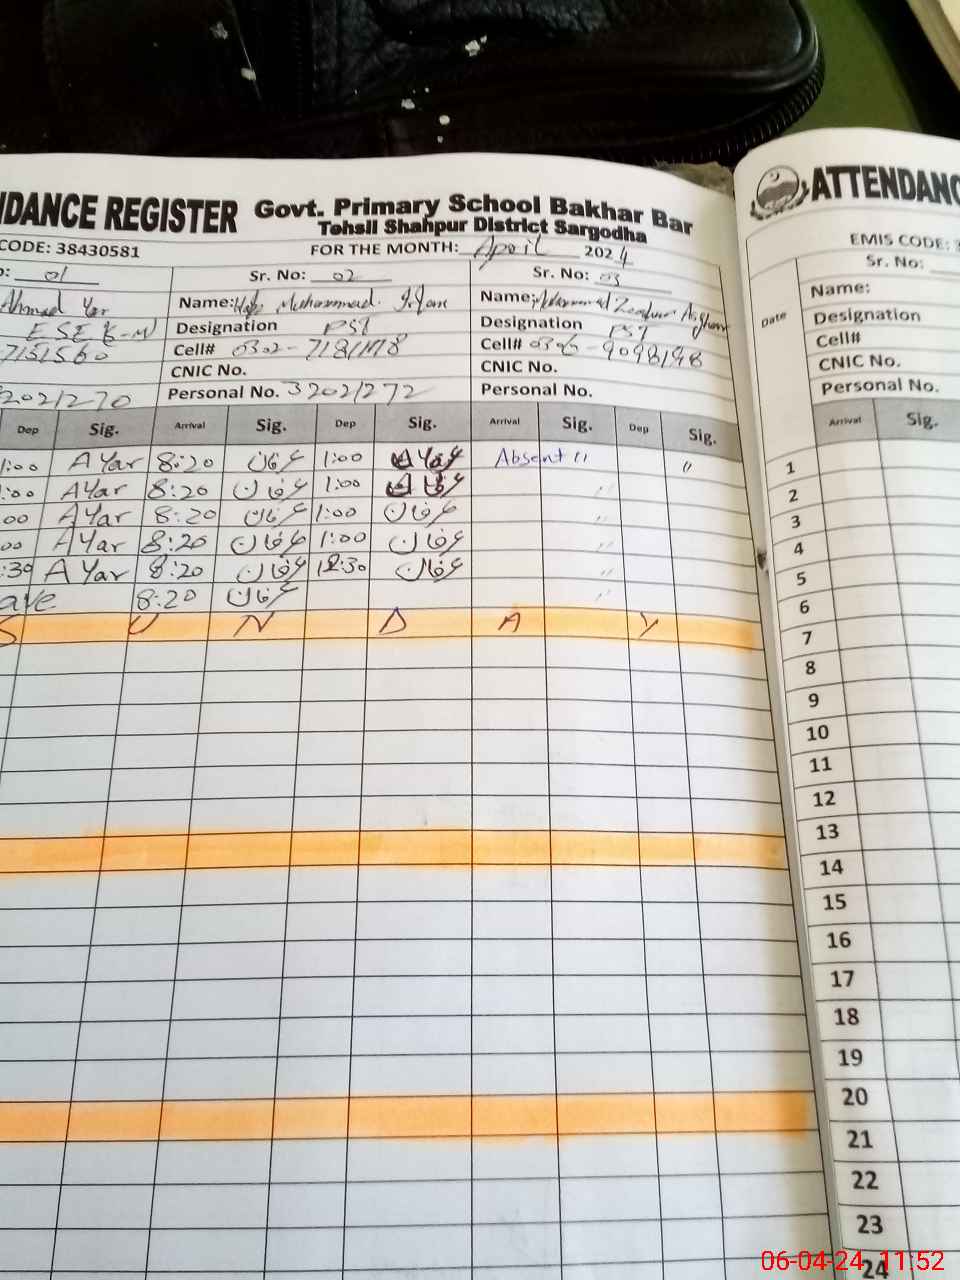 NDANCE REGISTER Govt. Primary School Bakhar Bar
Tehsil Shahpur District Sargodha
CODE: 38430581 FOR THE MONTH: April 2024
01 Sr. No: 02 Sr. No: 03
Ahmad Yar Name: Muhammad Irfan Name: Asghar
ESE Designation PST Designation PST
7151560 Cell# 0302-7181178 Cell# 0306-9098198
CNIC No. CNIC No.
3202/270 Personal No. 3202/272 Personal No.
Dep Sig. Arrival Sig. Dep Sig. Arrival Sig. Dep Sig.
1:00 A Yar 8:20 عرفان 1:00 Absent 〃 〃
:00 A Yar 8:20 عرفان 1:00 عرفان 〃
00 A Yar 8:20 عرفان 1:00 عرفان 〃
00 A Yar 8:20 عرفان 1:00 عرفان 〃
:30 A Yar 8:20 عرفان 12:30 عرفان 〃
ave 8:20 عرفان 〃
S U N D A Y
ATTENDANC
EMIS CODE: 3
Sr. No:
Name:
Date Designation
Cell#
CNIC No.
Personal No.
Arrival Sig.
1
2
3
4
5
6
7
8
9
10
11
12
13
14
15
16
17
18
19
20
21
22
23
24
06-04-24 11:52